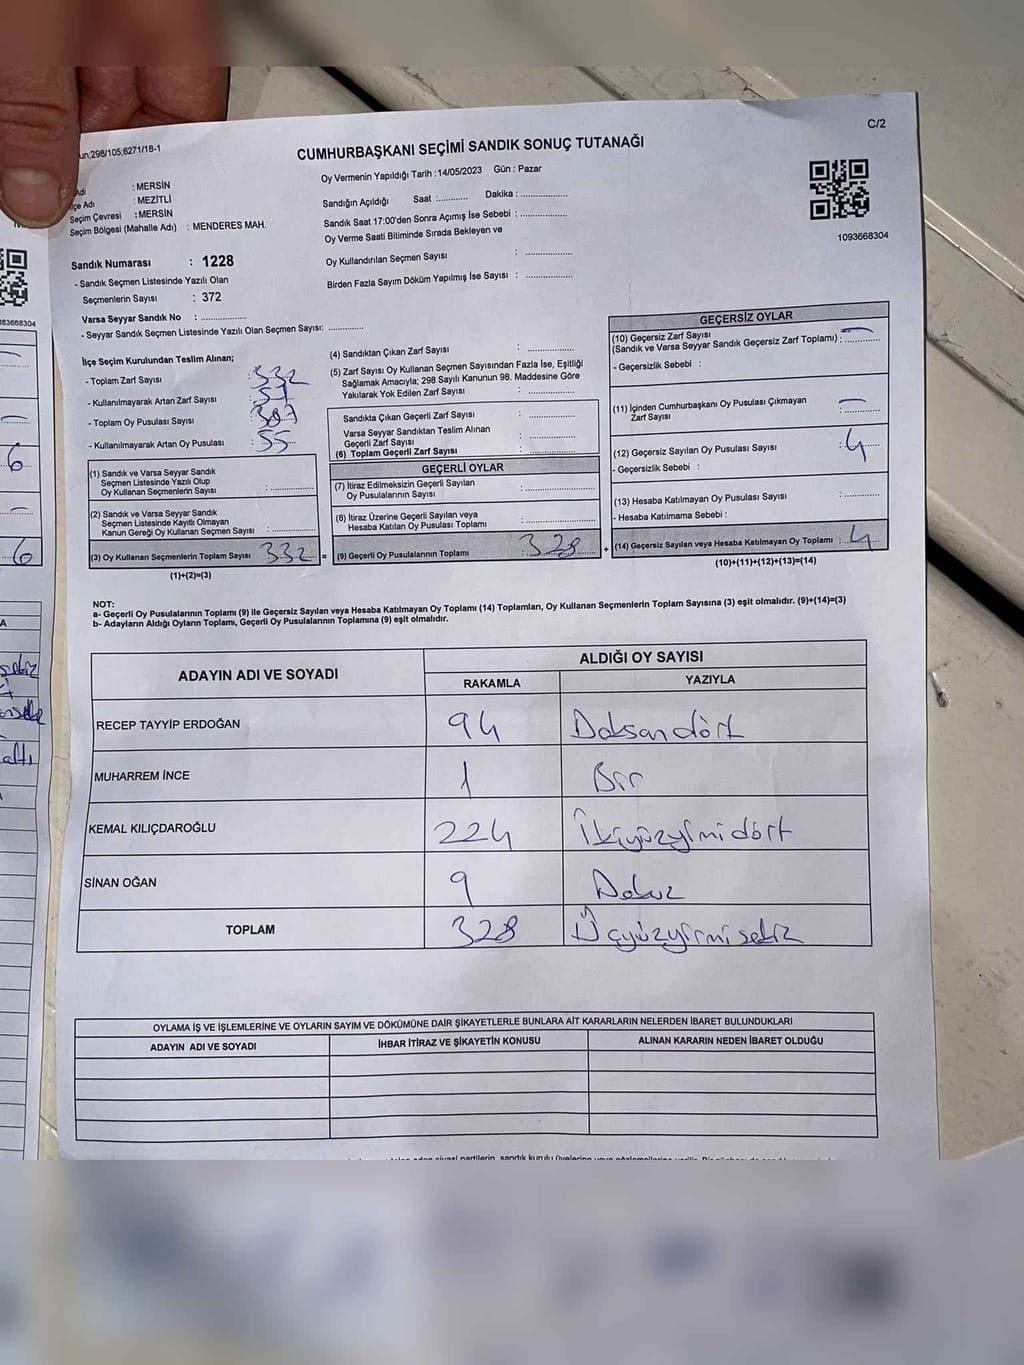 C/2
un:298/105;6271/18-1
CUMHURBAŞKANI SEÇİMİ SANDIK SONUÇ TUTANAĞI
Oy Vermenin Yapıldığı Tarih :14/05/2023 Gün : Pazar
Adı : MERSİN
İlçe Adı : MEZİTLİ
Seçim Çevresi : MERSİN
Seçim Bölgesi (Mahalle Adı) : MENDERES MAH.
Sandığın Açıldığı Saat :............ Dakika :................
Sandık Saat 17:00'den Sonra Açılmış İse Sebebi :................
Oy Verme Saati Bitiminde Sırada Bekleyen ve
Oy Kullandırılan Seçmen Sayısı :................
Birden Fazla Sayım Döküm Yapılmış İse Sayısı :................
1093668304
Sandık Numarası : 1228
- Sandık Seçmen Listesinde Yazılı Olan
Seçmenlerin Sayısı : 372
Varsa Seyyar Sandık No :................
- Seyyar Sandık Seçmen Listesinde Yazılı Olan Seçmen Sayısı:............
İlçe Seçim Kurulundan Teslim Alınan;
- Toplam Zarf Sayısı : 332
- Kullanılmayarak Artan Zarf Sayısı :
- Toplam Oy Pusulası Sayısı : 387
- Kullanılmayarak Artan Oy Pusulası : 55
(1) Sandık ve Varsa Seyyar Sandık
Seçmen Listesinde Yazılı Olup
Oy Kullanan Seçmenlerin Sayısı :................
(2) Sandık ve Varsa Seyyar Sandık
Seçmen Listesinde Kayıtlı Olmayan
Kanun Gereği Oy Kullanan Seçmen Sayısı :................
(3) Oy Kullanan Seçmenlerin Toplam Sayısı 332 =
(1)+(2)=(3)
(4) Sandıktan Çıkan Zarf Sayısı :................
(5) Zarf Sayısı Oy Kullanan Seçmen Sayısından Fazla İse, Eşitliği
Sağlamak Amacıyla; 298 Sayılı Kanunun 98. Maddesine Göre
Yakılarak Yok Edilen Zarf Sayısı :................
Sandıkta Çıkan Geçerli Zarf Sayısı :................
Varsa Seyyar Sandıktan Teslim Alınan
Geçerli Zarf Sayısı :................
(6) Toplam Geçerli Zarf Sayısı :................
GEÇERLİ OYLAR
(7) İtiraz Edilmeksizin Geçerli Sayılan
Oy Pusulalarının Sayısı :................
(8) İtiraz Üzerine Geçerli Sayılan veya
Hesaba Katılan Oy Pusulası Toplamı :................
(9) Geçerli Oy Pusulalarının Toplamı : 328 +
GEÇERSİZ OYLAR
(10) Geçersiz Zarf Sayısı
(Sandık ve Varsa Seyyar Sandık Geçersiz Zarf Toplamı) : —
- Geçersizlik Sebebi :
(11) İçinden Cumhurbaşkanı Oy Pusulası Çıkmayan
Zarf Sayısı : —
(12) Geçersiz Sayılan Oy Pusulası Sayısı : 4
- Geçersizlik Sebebi :
(13) Hesaba Katılmayan Oy Pusulası Sayısı :............
- Hesaba Katılmama Sebebi :
(14) Geçersiz Sayılan veya Hesaba Katılmayan Oy Toplamı : 4
(10)+(11)+(12)+(13)=(14)
NOT:
a- Geçerli Oy Pusulalarının Toplamı (9) ile Geçersiz Sayılan veya Hesaba Katılmayan Oy Toplamı (14) Toplamları, Oy Kullanan Seçmenlerin Toplam Sayısına (3) eşit olmalıdır. (9)+(14)=(3)
b- Adayların Aldığı Oyların Toplamı, Geçerli Oy Pusulalarının Toplamına (9) eşit olmalıdır.
ADAYIN ADI VE SOYADI ALDIĞI OY SAYISI
RAKAMLA YAZIYLA
RECEP TAYYİP ERDOĞAN 94 Doksandört
MUHARREM İNCE 1 Bir
KEMAL KILIÇDAROĞLU 224 İkiyüzyimidört
SİNAN OĞAN 9 Dokuz
TOPLAM 328 Üçyüzyirmisekiz
OYLAMA İŞ VE İŞLEMLERİNE VE OYLARIN SAYIM VE DÖKÜMÜNE DAİR ŞİKAYETLERLE BUNLARA AİT KARARLARIN NELERDEN İBARET BULUNDUKLARI
ADAYIN ADI VE SOYADI İHBAR İTİRAZ VE ŞİKAYETİN KONUSU ALINAN KARARIN NEDEN İBARET OLDUĞU
6
6
altı